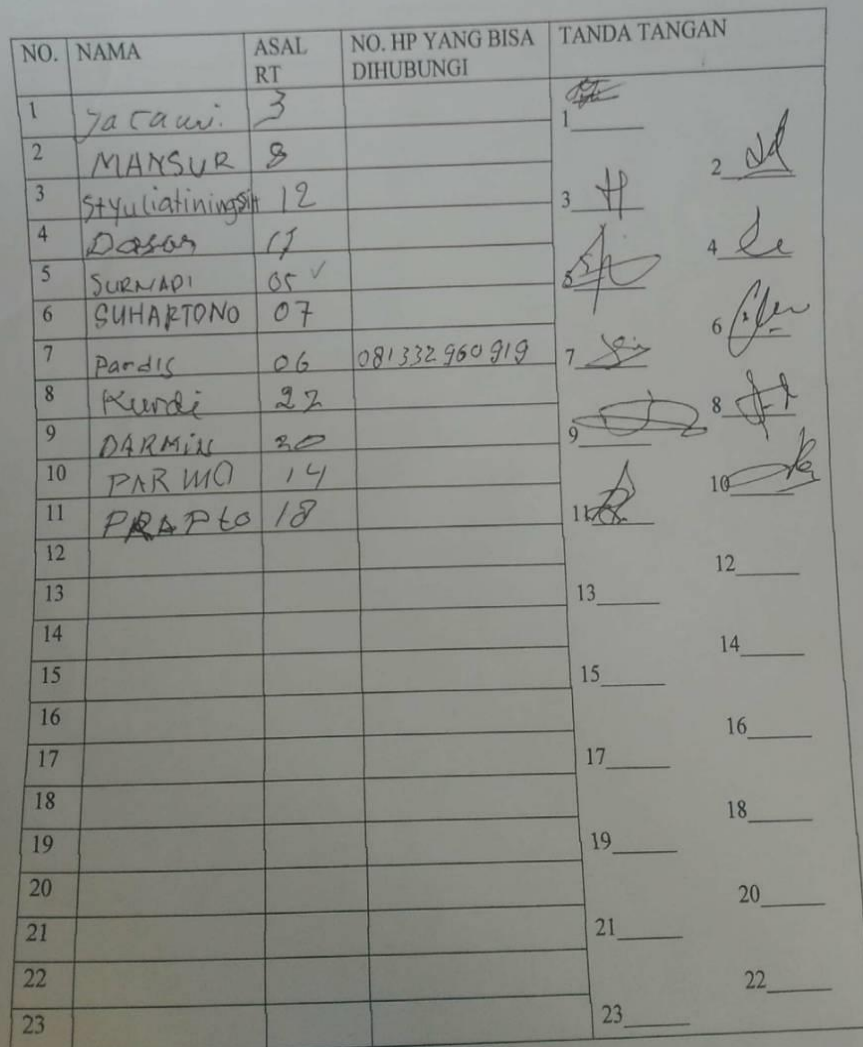 NO. NAMA ASAL RT NO. HP YANG BISA DIHUBUNGI TANDA TANGAN
1 3 1
2 MANSUR 8 2
3 Styuliatiningsih 12 3
4 4
5 05 ✓ 5
6 SUHARTONO 07 6
7 Pardis 06 081332960919 7
8 Kurdi 22 8
9 DARMIN 20 9
10 PARMO 14 10
11 PRAPto 18 11
12 12
13 13
14 14
15 15
16 16
17 17
18 18
19 19
20 20
21 21
22 22
23 23